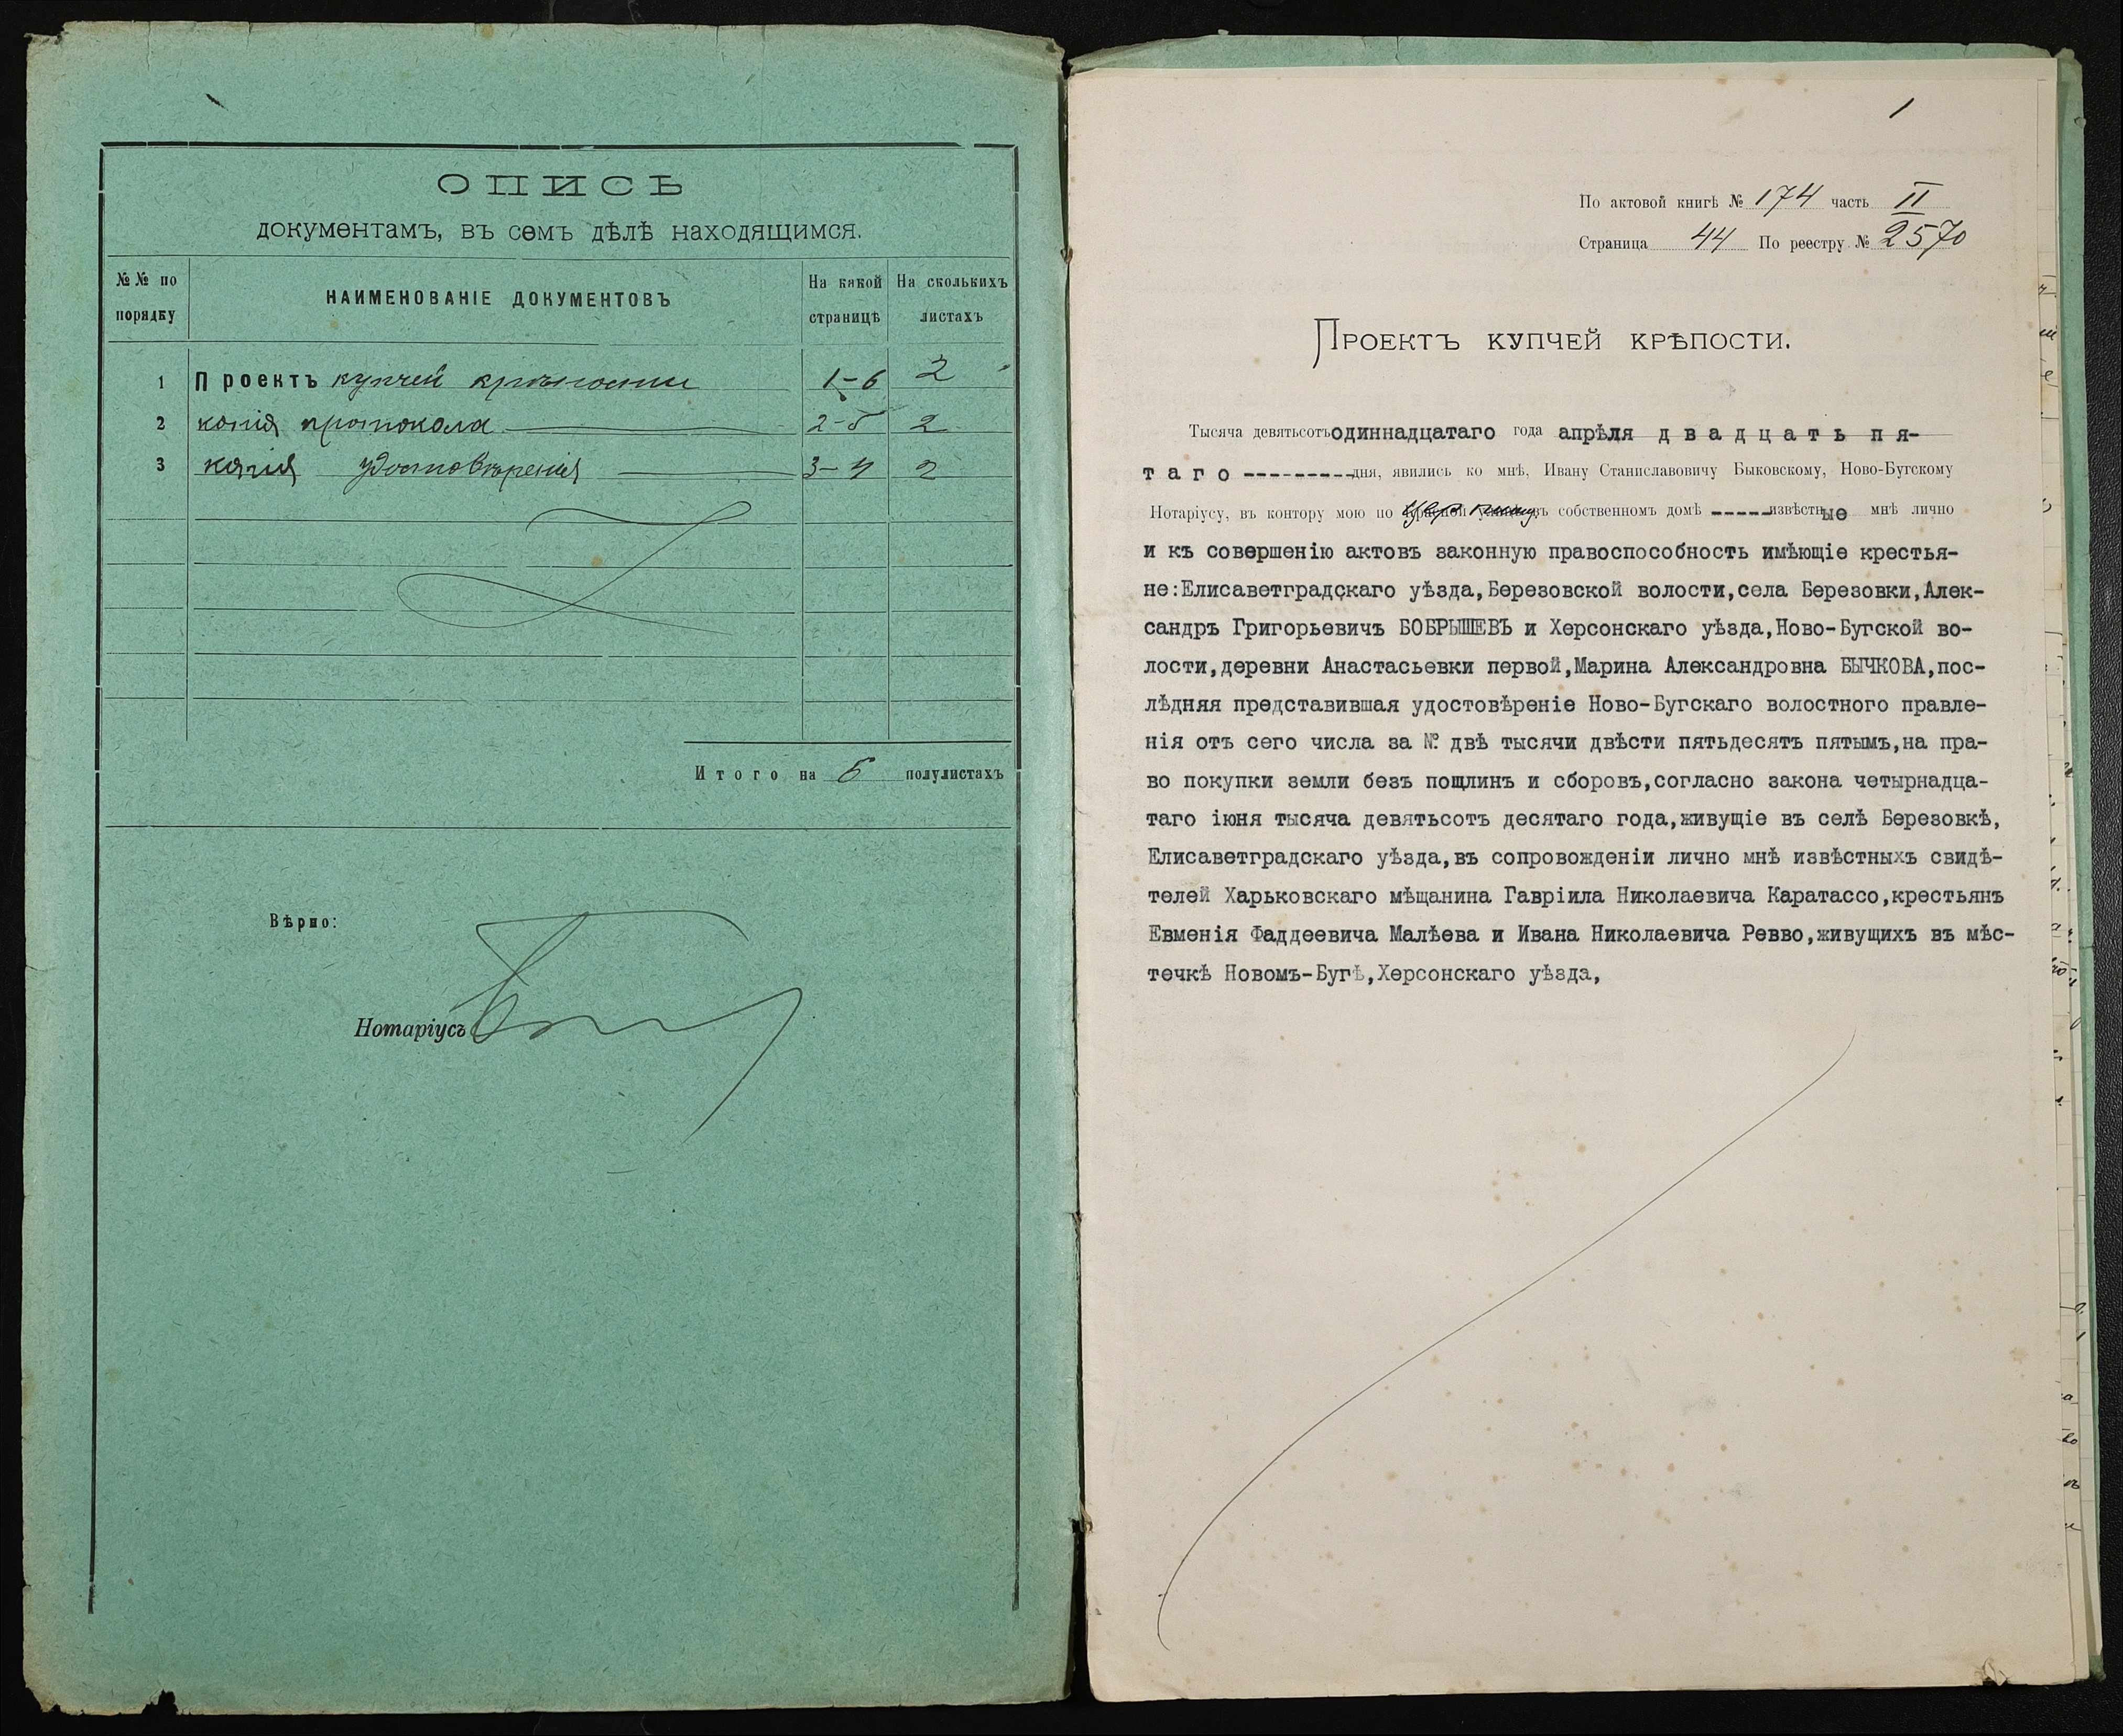 ОПИСЬ
документамъ, въ семъ дѣлѣ находящимся.
№№ по порядку
НАИМЕНОВАНІЕ ДОКУМЕНТОВЪ
На какой страницѣ
На сколькихъ листахъ
1 Проектъ купчей крѣпости 1-6 2
2 копія протокола 2-5 2
3 копія удостовѣренія 3-4 2
Итого на 6 полулистахъ
Вѣрно:
Нотаріусъ
1
По актовой книгѣ № 174 часть II
Страница 44 По реестру № 2570
Проектъ купчей крѣпости.
Тысяча девятьсотъ одиннадцатаго года апрѣля двадцать пя-
таго ---------дня, явились ко мнѣ, Ивану Станиславовичу Быковскому, Ново-Бугскому
Нотаріусу, въ контору мою по въ собственномъ домѣ -----извѣстные мнѣ лично
и къ совершенію актовъ законную правоспособность имѣющіе крестья-
не:Елисаветградскаго уѣзда,Березовской волости,села Березовки,Алек-
сандръ Григорьевичъ БОБРЫШЕВЪ и Херсонскаго уѣзда,Ново-Бугской во-
лости,деревни Анастасьевки первой,Марина Александровна БЫЧКОВА,пос-
лѣдняя представившая удостовѣреніе Ново-Бугскаго волостного правле-
нія отъ сего числа за № двѣ тысячи двѣсти пятьдесятъ пятымъ,на пра-
во покупки земли безъ пошлинъ и сборовъ,согласно закона четырнадца-
таго іюня тысяча девятьсотъ десятаго года,живущіе въ селѣ Березовкѣ,
Елисаветградскаго уѣзда,въ сопровожденіи лично мнѣ извѣстныхъ свидѣ-
телей Харьковскаго мѣщанина Гавріила Николаевича Каратассо,крестьянъ
Евменія Фаддеевича Малѣева и Ивана Николаевича Ревво,живущихъ въ мѣс-
течкѣ Новомъ-Бугѣ,Херсонскаго уѣзда,